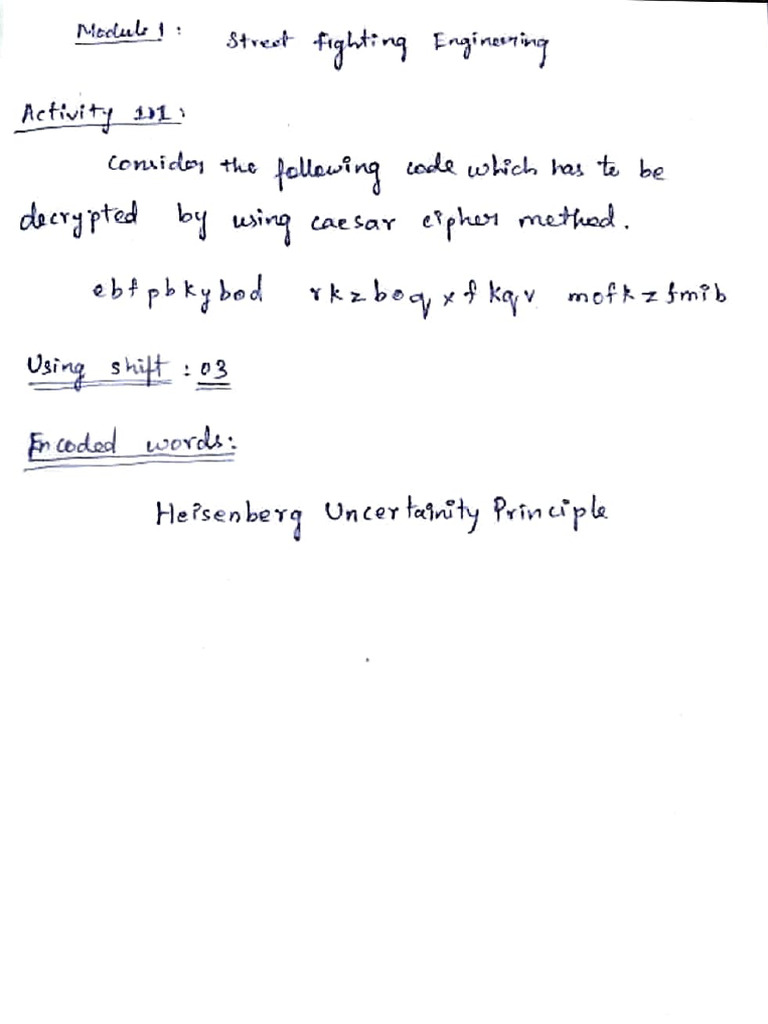 Module 1 : Street fighting Engineering
Activity 1.1 :
Consider the following code which has to be
decrypted by using caesar cipher method.
ebfpbkybod rkzboqxfkqv mofkzfmib
Using shift : 03
Encoded words:
Heisenberg Uncertainity Principle